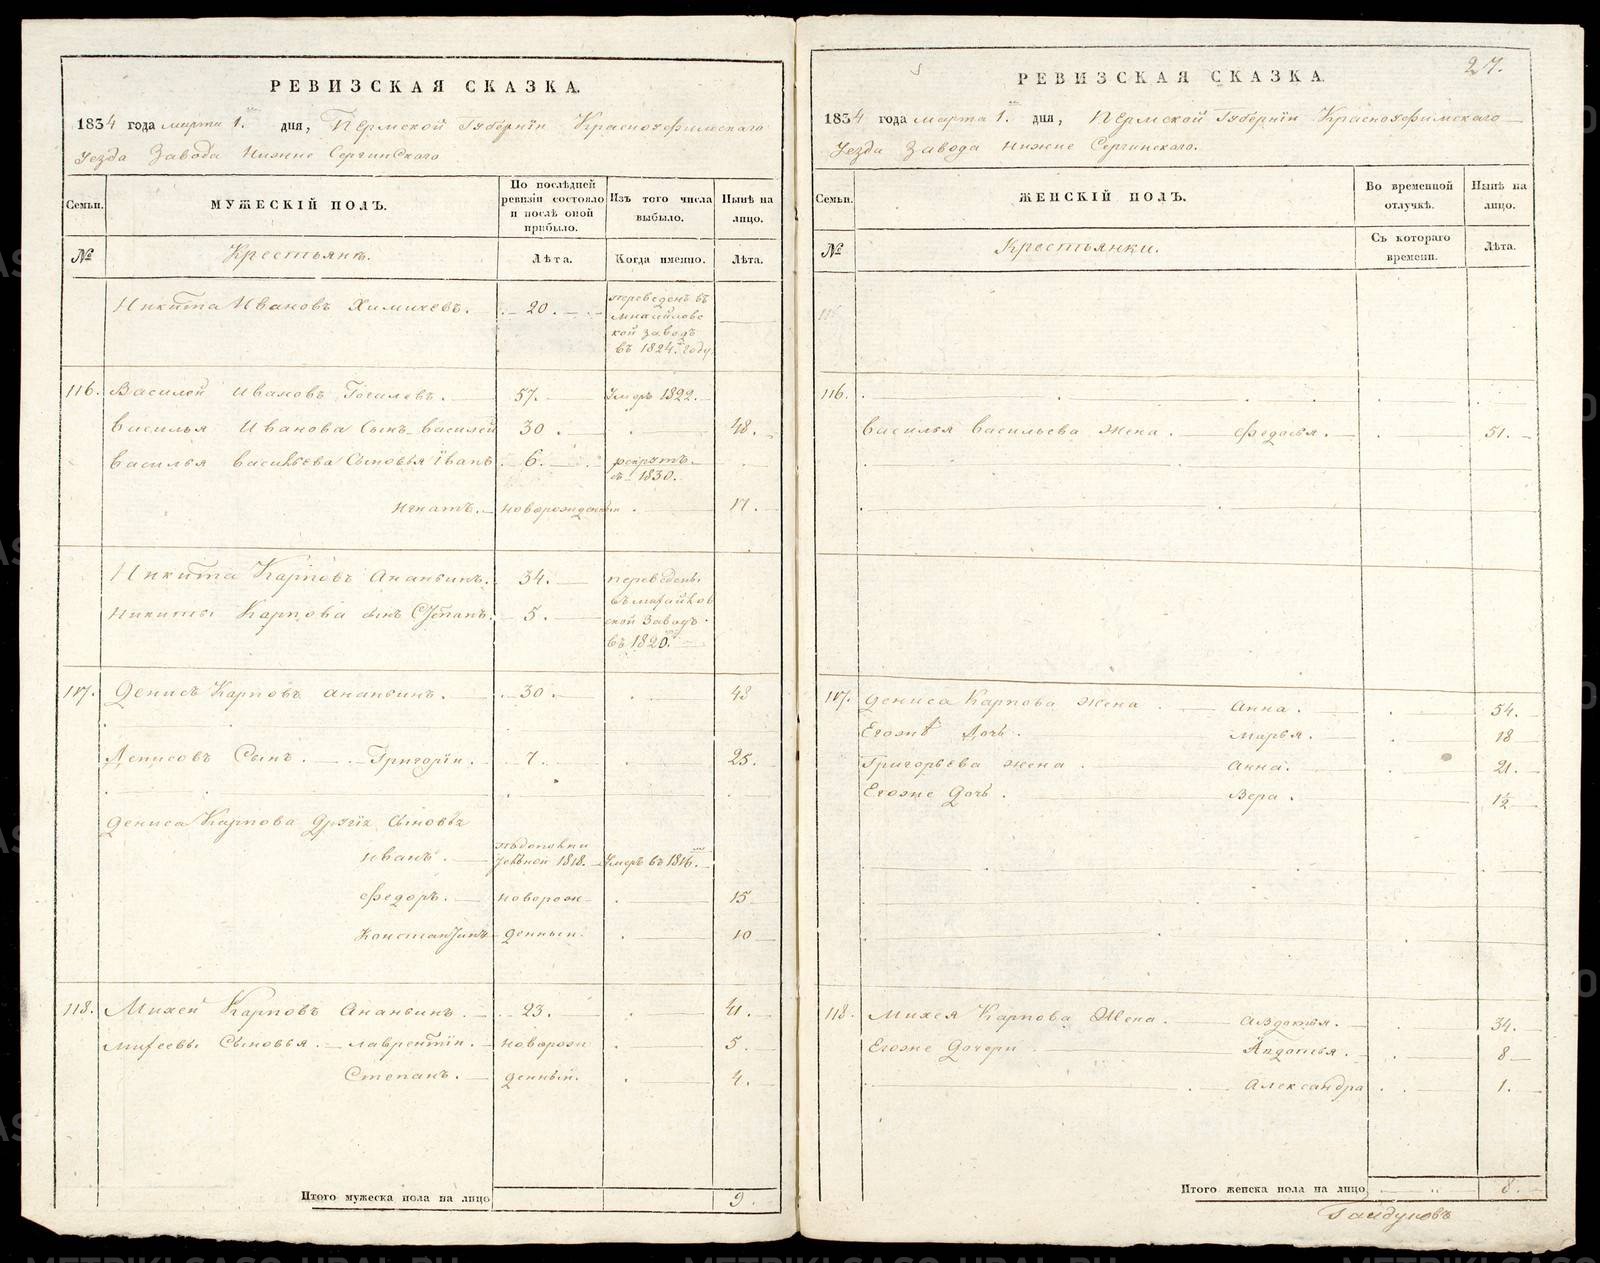 РЕВИЗСКАЯ СКАЗКА.
1834 года марта 1. дня, Пермской Губернїи Красноуфимскаго
Уезда Завода Нижне Сергинскаго
Семьи. МУЖЕСКІЙ ПОЛЪ. По послѣдней ревизіи состояло и послѣ оной прибыло. Изъ того числа выбыло. Нынѣ на лицо.
№ Крестьянѣ. Лѣта. Когда именно. Лѣта.
Никита Ивановъ Химичевъ. 20. переведенъ въ
кой заводъ
въ 1824. году.
116. Василей Ивановъ 57. Умеръ 1822.
Василья Иванова Сынъ Василей 30. 48.
Василья Васильева Сыновья Їванъ 6. рекрутъ
въ 1830.
Игнатъ. новорожденный 17.
Никита Карповъ Ананьинъ. 34. переведены
Никиты Карпова сынъ Степанъ. 5. ской Заводъ
въ 1820.
117. Денисъ Карповъ Ананьинъ. 30. 48
Денисовъ Сынъ. Григорїи. 7. 25.
Дениса Карпова Другїя Сыновья
Иванъ. 1818. Умеръ въ 1816.
Федоръ. новорож 15
Константинъ денныи. 10
118. Михей Карповъ Ананьинъ. 23. 41.
Михеевы Сыновья. Лаврентїи. новорож 5.
Степанъ. денный. 4.
Итого мужеска пола на лицо 9.
27.
РЕВИЗСКАЯ СКАЗКА.
1834 года марта 1. дня, Пермской Губернїи Красноуфимскаго
Уезда Завода Нижне Сергинскаго.
Семьи. ЖЕНСКІЙ ПОЛЪ. Во временной отлучкѣ. Нынѣ на лицо.
№ Крестьянки. Съ котораго времени. Лѣта.
116.
Василья Васильева жена. Федосья. 51.
117. Дениса Карпова жена Анна. 54.
Егоже Дочь. Марья. 18
Григорьева жена Анна. 21.
Егоже Дочь. Вера. 1½
118. Михея Карпова Жена. Авдотья. 34.
Егоже Дочери Авдотья. 8
Александра 1.
Итого женска пола на лицо 8.